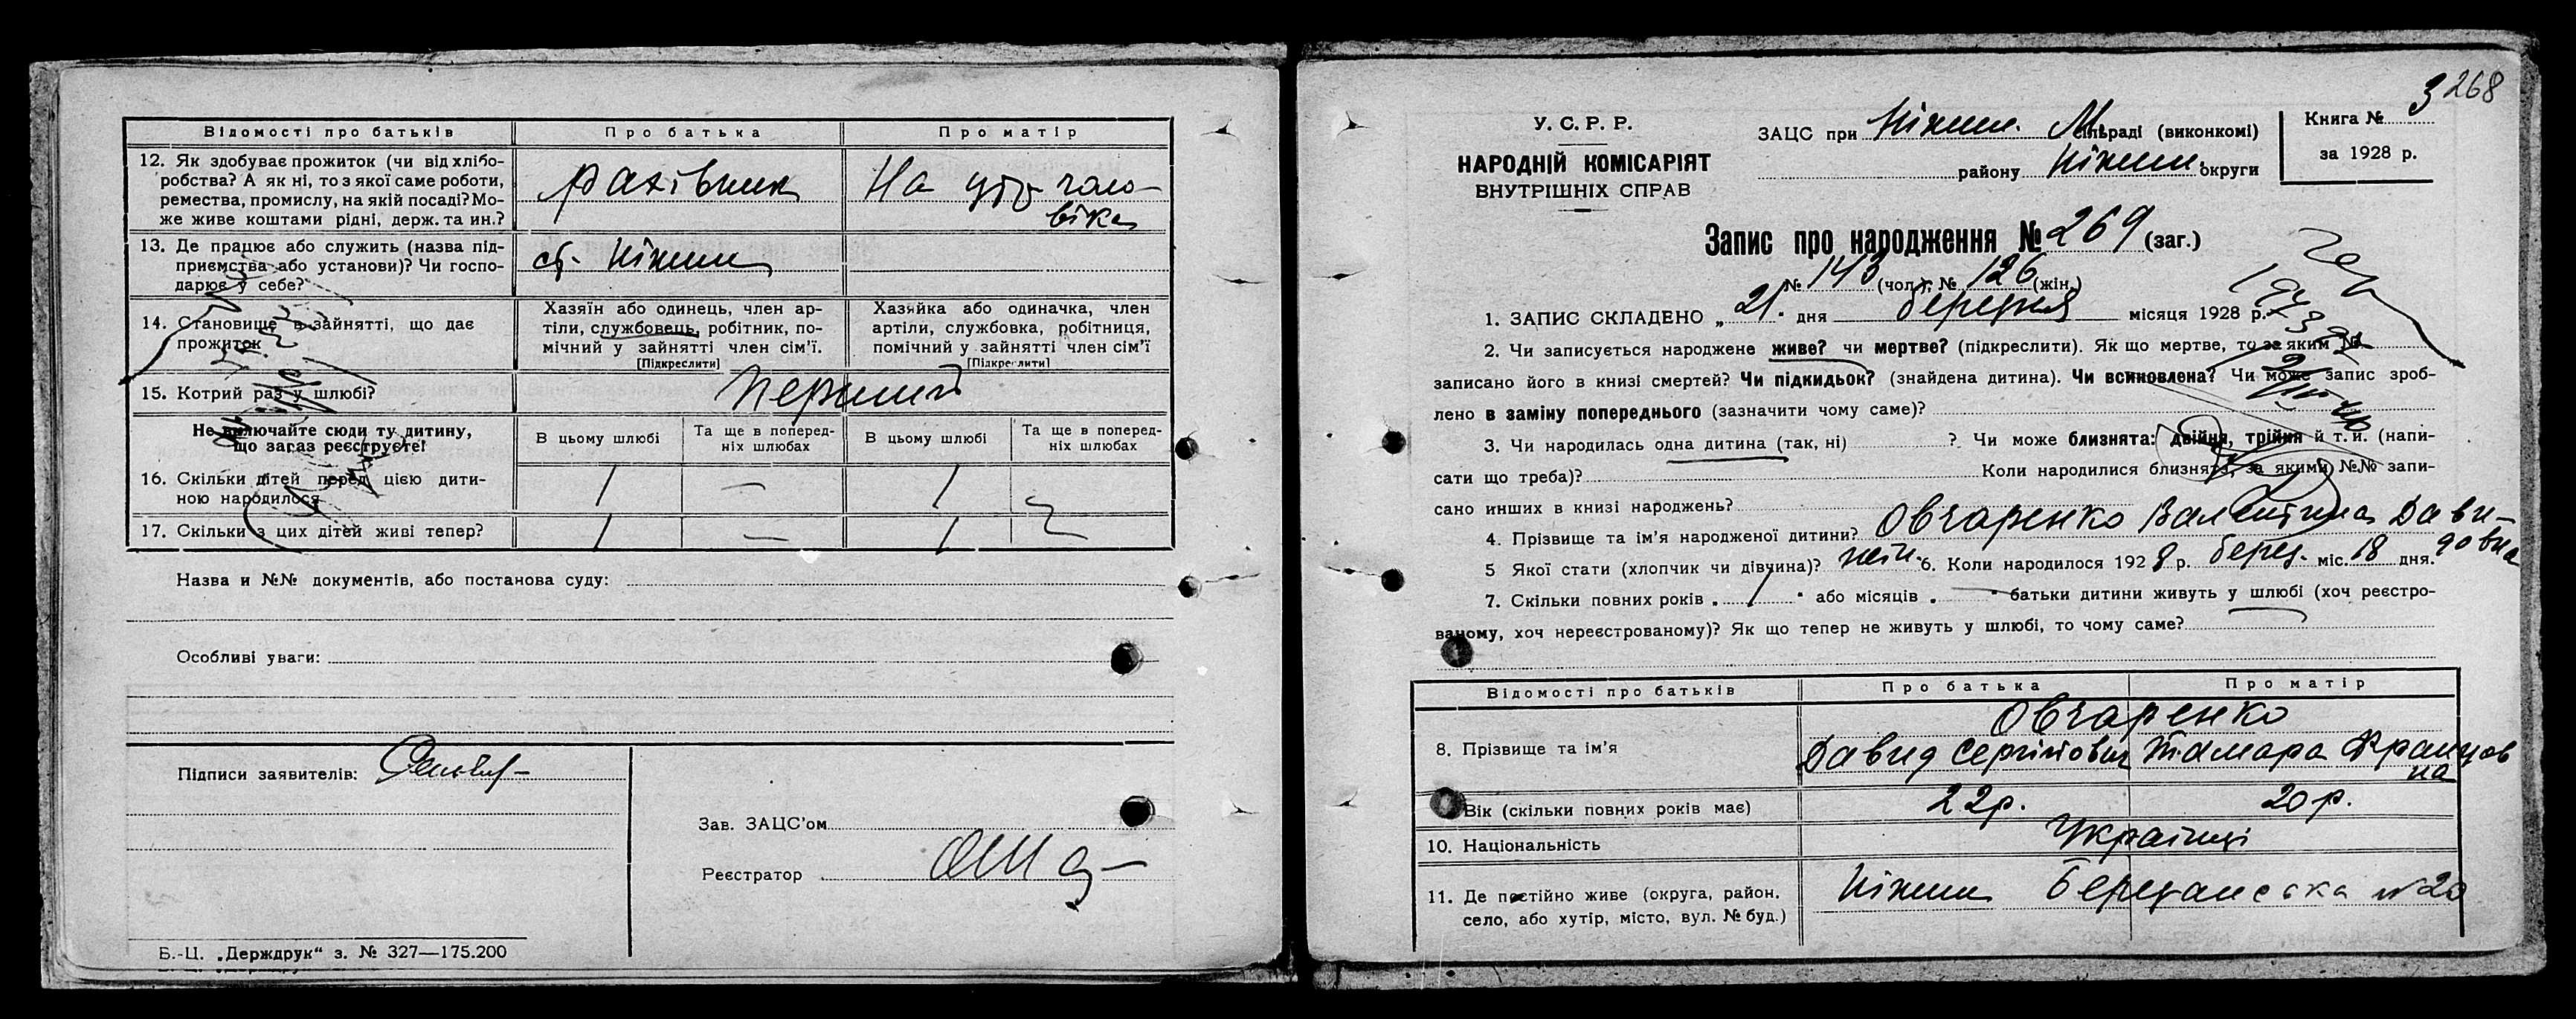 Відомості про батьків Про батька Про матір
12. Як здобуває прожиток (чи від хлібо-
робства? А як ні, то з якої саме роботи,
ремества, промислу, на якій посаді? Мо-
же живе коштами рідні, держ. та ин.?
Рахівник На утр. чоло-
віка
13. Де працює або служить (назва під-
приємства або установи)? Чи госпо-
дарює у себе?
ст. Ніжин
14. Становище в зайнятті, що дає
прожиток
Хазяїн або одинець, член ар-
тіли, службовець, робітник, по-
мічний у зайнятті член сім'ї.
[Підкреслити]
Хазяйка або одиначка, член
артіли, службовка, робітниця,
помічний у зайнятті член сім'ї
[Підкреслити]
15. Котрий раз у шлюбі? Перший
Не включайте сюди ту дитину,
що зараз реєструєте!
В цьому шлюбі
Та ще в поперед-
ніх шлюбах
В цьому шлюбі
Та ще в поперед-
ніх шлюбах
16. Скільки дітей перед цією дити-
ною народилося
1 — 1
17. Скільки з цих дітей живі тепер? 1 — 1
Назва и №№ документів, або постанова суду:
Особливі уваги:
Підписи заявителів:
Зав. ЗАЦС'ом
Реєстратор
Б.-Ц. „Держдрук“ з. № 327—175.200
268
У. С. Р. Р.
НАРОДНІЙ КОМІСАРІЯТ
ВНУТРІШНІХ СПРАВ
ЗАЦС при Ніжин. М. сільраді (виконкомі)
району Ніжин. округи
Книга № 3
за 1928 р.
Запис про народження № 269 (заг.)
№ 143 (чол.); № 126 (жін.)
1. ЗАПИС СКЛАДЕНО „ 21. дня березня місяця 1928 р.
2. Чи записується народжене живе? чи мертве? (підкреслити). Як що мертве, то за яким №
записано його в книзі смертей? Чи підкидьок? (знайдена дитина). Чи всиновлена? Чи може запис зроб-
лено в заміну попереднього (зазначити чому саме)?
3. Чи народилась одна дитина (так, ні) ? Чи може близнята: двійня, трійня й т. и. (напи-
сати що треба)? Коли народилися близнята, за якими №№ запи-
сано инших в книзі народжень?
4. Прізвище та ім'я народженої дитини? Овчаренко Валентина Дави-
довна
5 Якої стати (хлопчик чи дівчина)? жін. 6. Коли народилося 1928 р. берез. міс. 18 дня.
7. Скільки повних років „ 1 “ або місяців „ — “ батьки дитини живуть у шлюбі (хоч реєстро-
ваному, хоч нереєстрованому)? Як що тепер не живуть у шлюбі, то чому саме?
Відомості про батьків Про батька Про матір
Овчаренко
8. Прізвище та ім'я Давид Сергійович Тамара Францов
на
Вік (скільки повних років має) 22р. 20 р.
10. Національність Українці
11. Де постійно живе (округа, район,
село, або хутір, місто, вул. № буд.)
Ніжин №20